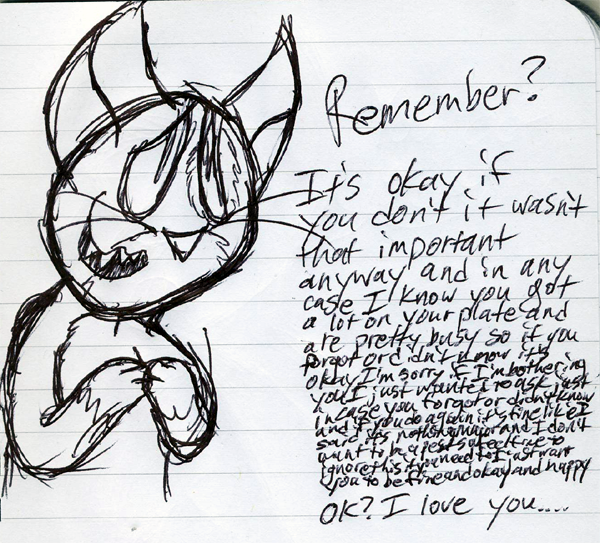 Remember?
It's okay if
you don't it wasn't
that important
anyway and in any
case I know you got
a lot on your plate and
are pretty busy so if you
forgot or didn't know it's
okay I'm sorry if I'm bothering
you I just wanted to ask just
in case you forgot or didn't know
and if you do again it's fine like I
said it's nothing major and I don't
want to be a pest so feel free to
ignore this if you need to I just want
you to be fine and okay and happy
OK? I love you....